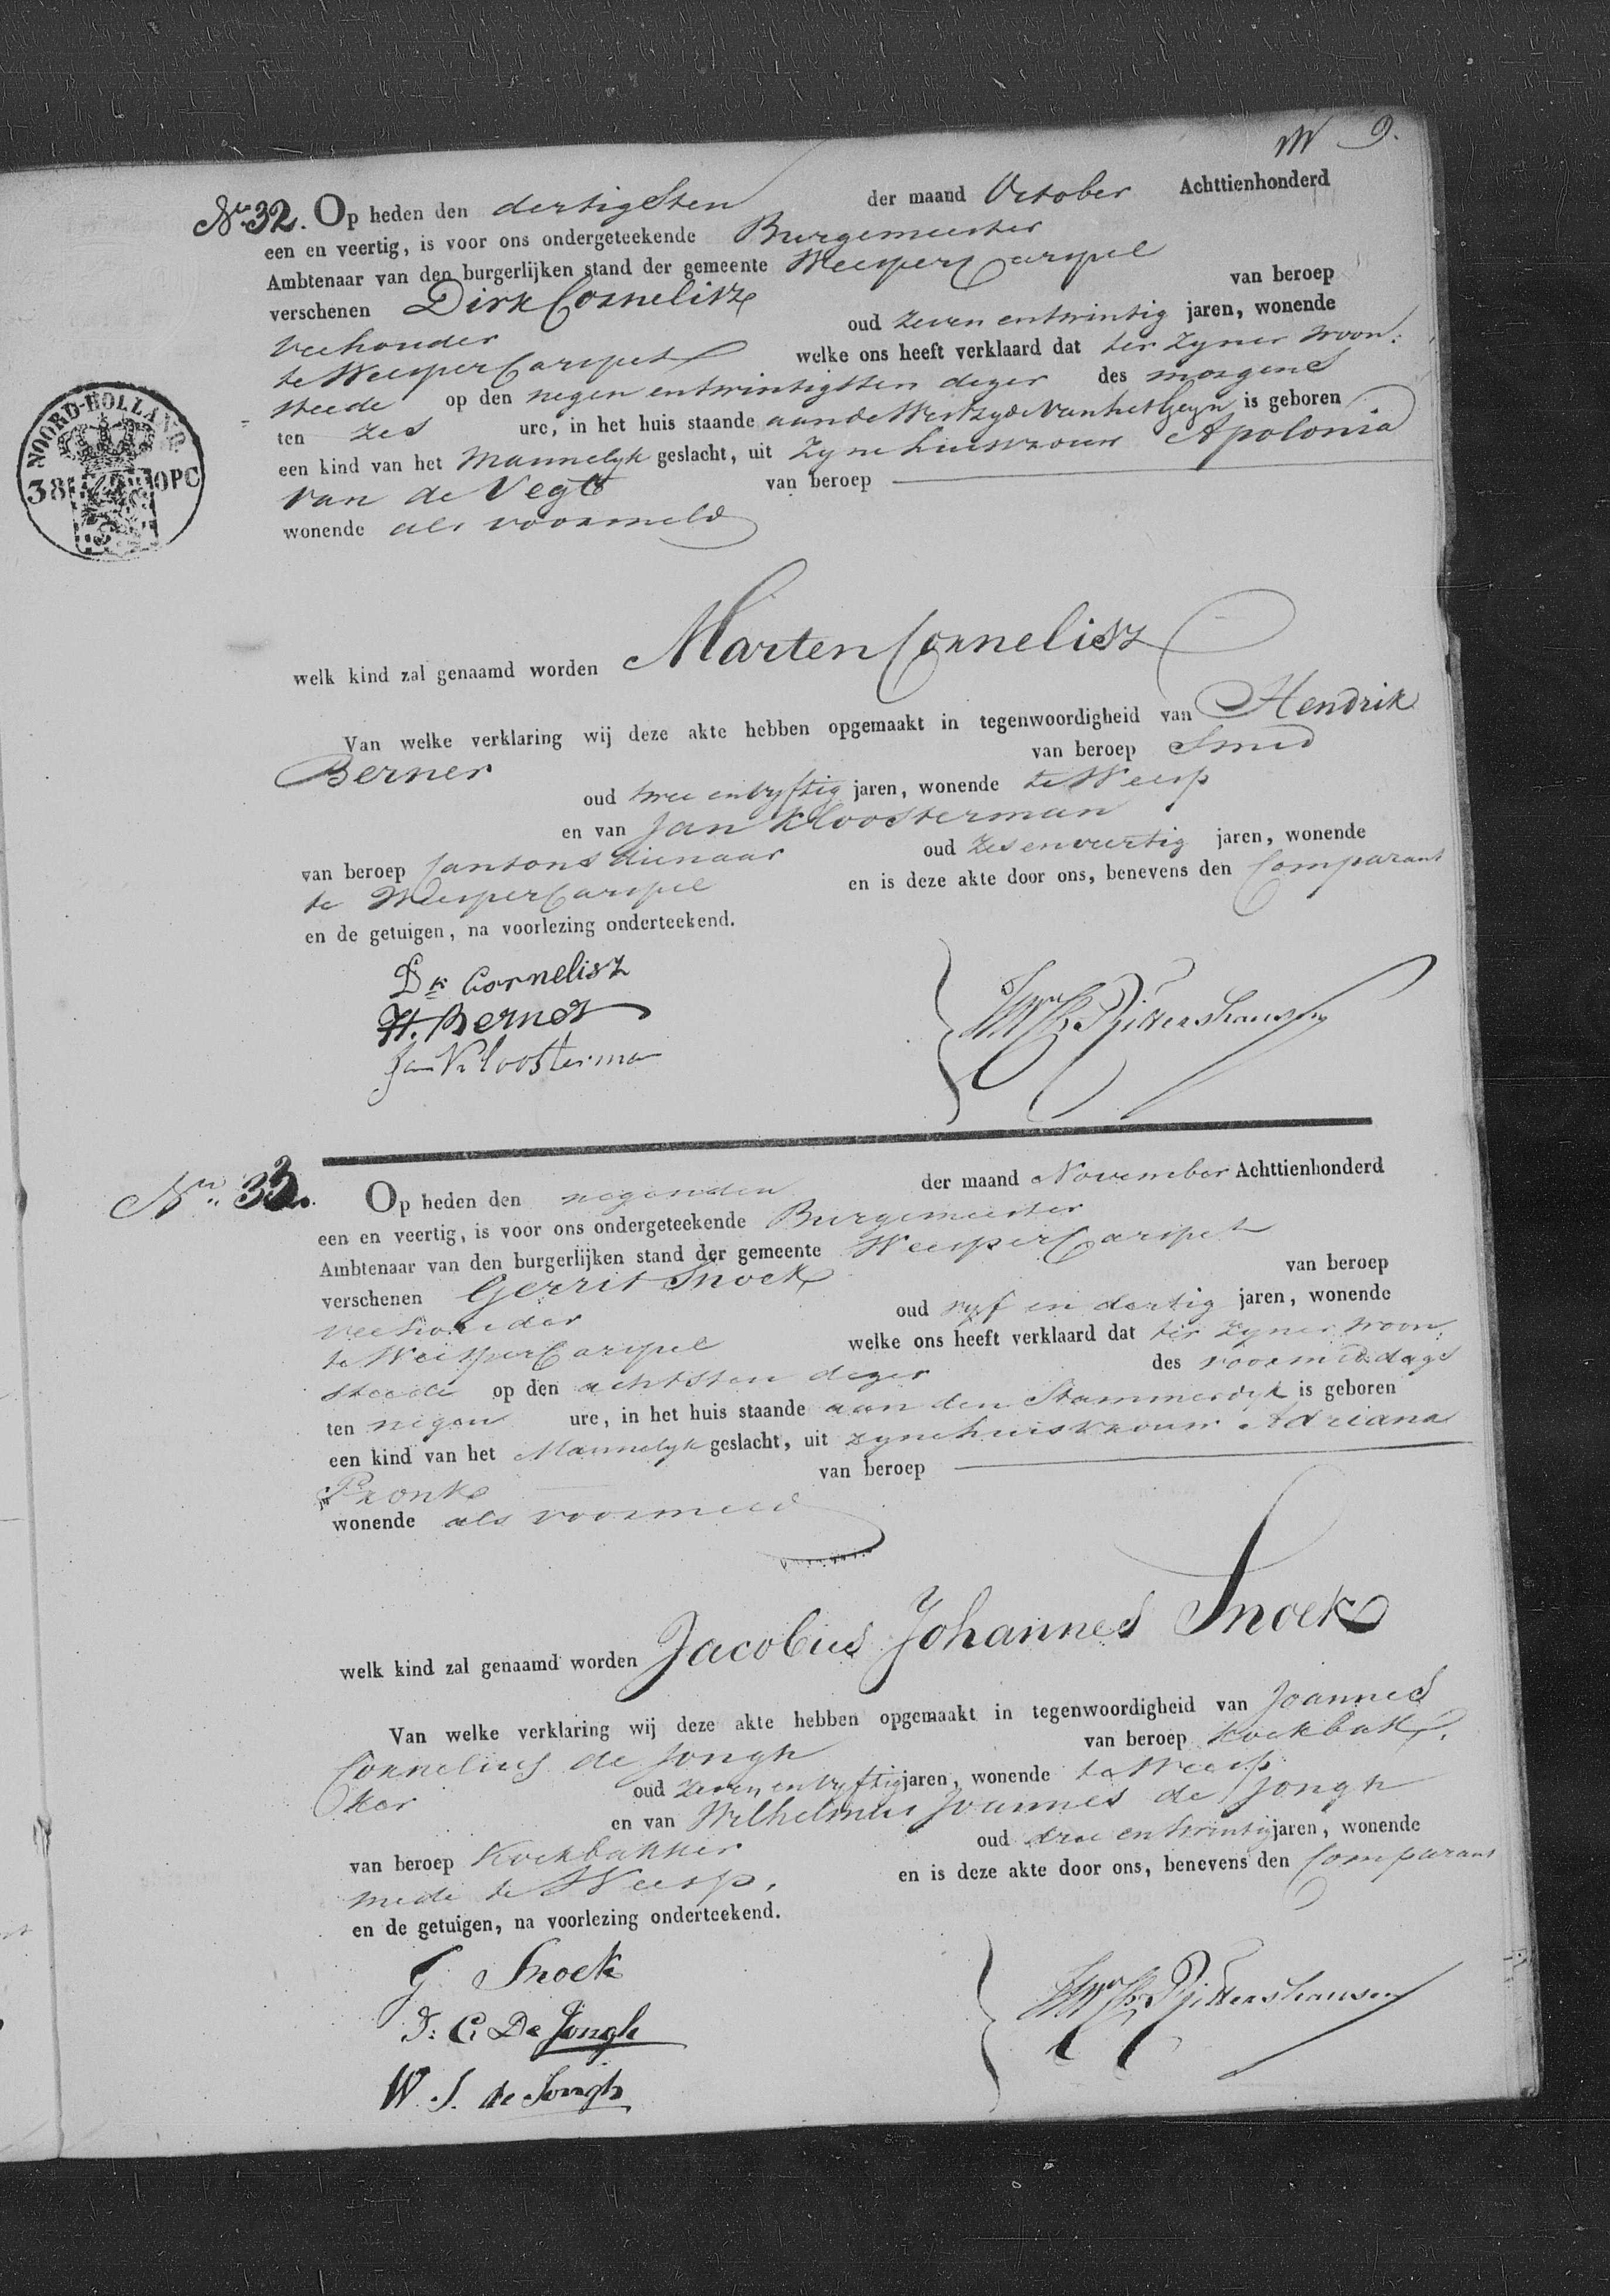 9.
No. 32. Op heden den dertigsten der maand October Achttienhonderd
een en veertig, is voor ons ondergeteekende Burgemeester
Ambtenaar van den burgerlijken stand der gemeente WeesperCarspel
verschenen Dirk Cornelisz van beroep
veehouder oud zeven entwintig jaren, wonende
te WeesperCarspel welke ons heeft verklaard dat ter zyner woon:
steede op den negen entwintigsten dezer des morgens
ten zes ure, in het huis staande aan de Westzyde van het Geyn is geboren
een kind van het Mannelyk geslacht, uit zyne huisvrouw Apolonia
van de Vegt van beroep
wonende als voormeld
NOORD-HOLLAND.
38 OPC
welk kind zal genaamd worden Marten Cornelisz
Van welke verklaring wij deze akte hebben opgemaakt in tegenwoordigheid van Hendrik
Berner van beroep Smid
oud twee envyftig jaren, wonende te Weesp
en van Jan Kloosterman
van beroep Cantons dienaar oud zes enveertig jaren, wonende
te WeesperCarspel en is deze akte door ons, benevens den Comparant
en de getuigen, na voorlezing onderteekend.
Dk Cornelisz
H. Berner
Jan Kloosterman
No. 33. Op heden den negenden der maand November Achttienhonderd
een en veertig, is voor ons ondergeteekende Burgemeester
Ambtenaar van den burgerlijken stand der gemeente WeesperCarspel
verschenen Gerrit Snoek van beroep
veehouder oud vyf en dertig jaren, wonende
te WeesperCarspel welke ons heeft verklaard dat ter zyner woon:
steede op den achtsten dezer des voormiddags
ten negen ure, in het huis staande aan den Stammerdyk is geboren
een kind van het Mannelyk geslacht, uit zyne huisvrouw Adriana
Pronk van beroep
wonende als voormeld
welk kind zal genaamd worden Jacobus Johannes Snoek
Van welke verklaring wij deze akte hebben opgemaakt in tegenwoordigheid van Joannes
Cornelius de Jongh van beroep Koekbak
ker oud zeven envyftig jaren, wonende te Weesp
en van Wilhelmus Joannes de Jongh
van beroep Koekbakker oud drie entwintig jaren, wonende
mede te Weesp. en is deze akte door ons, benevens den Comparant
en de getuigen, na voorlezing onderteekend.
G Snoek
J: C: De Jongh
W. J. de Jongh